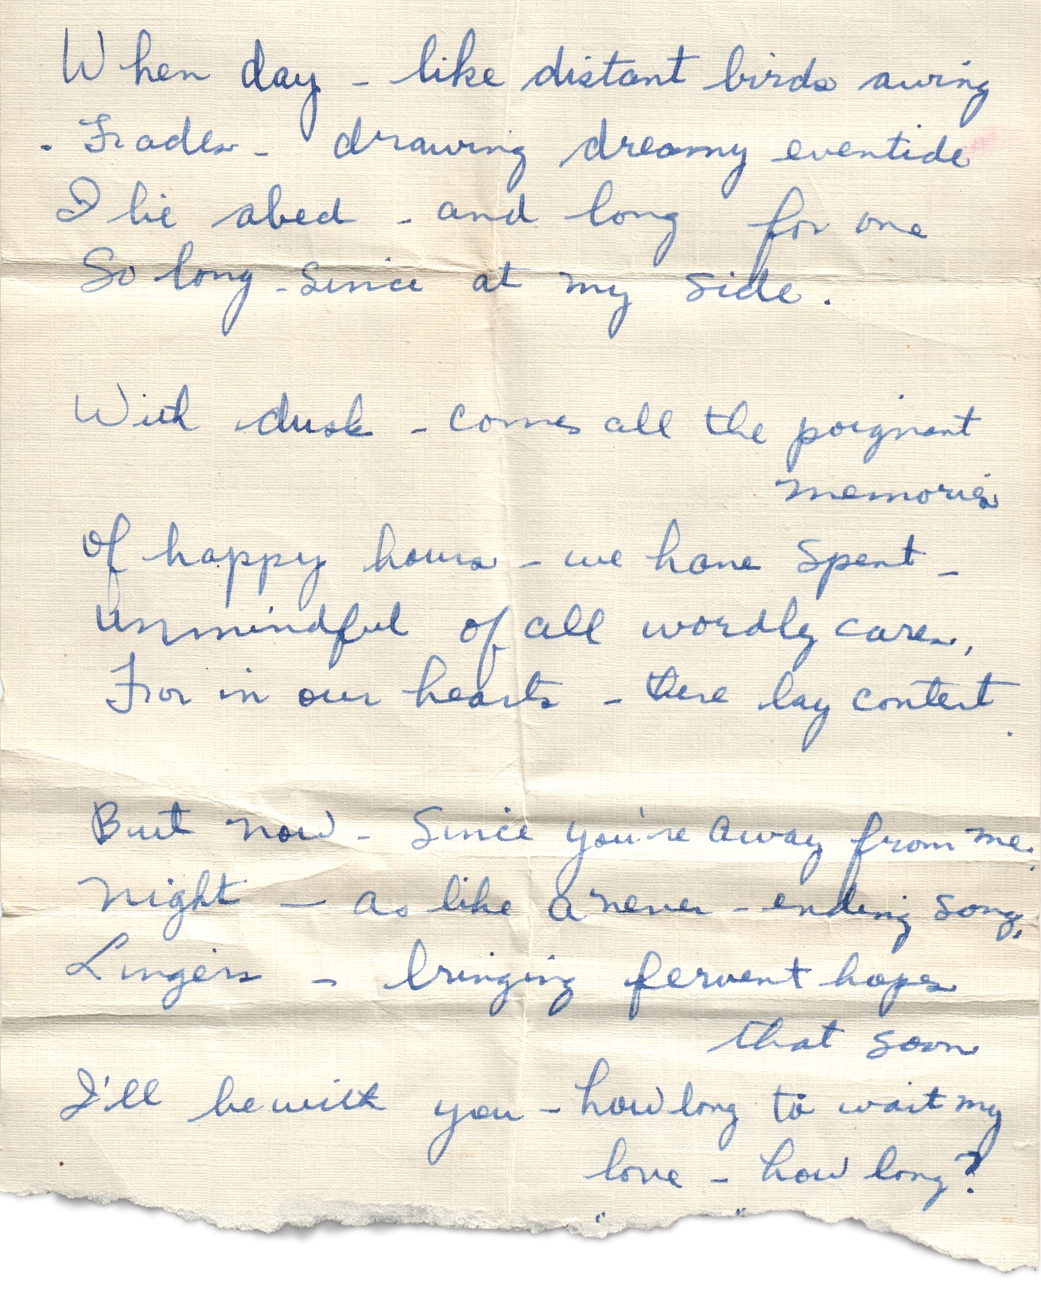 When day - like distant birds awing
Fades - drawing dreamy eventide
I lie abed - and long for one
So long - since at my side.
With dusk - comes all the poignant
memories
Of happy hours - we have spent -
Unmindful of all wordly cares,
For in our hearts - there lay content.
But now - Since you're away from me.
Night - as like a never - ending song,
Lingers - bringing fervent hopes
that soon
I'll be with you - how long to wait my
love - how long?